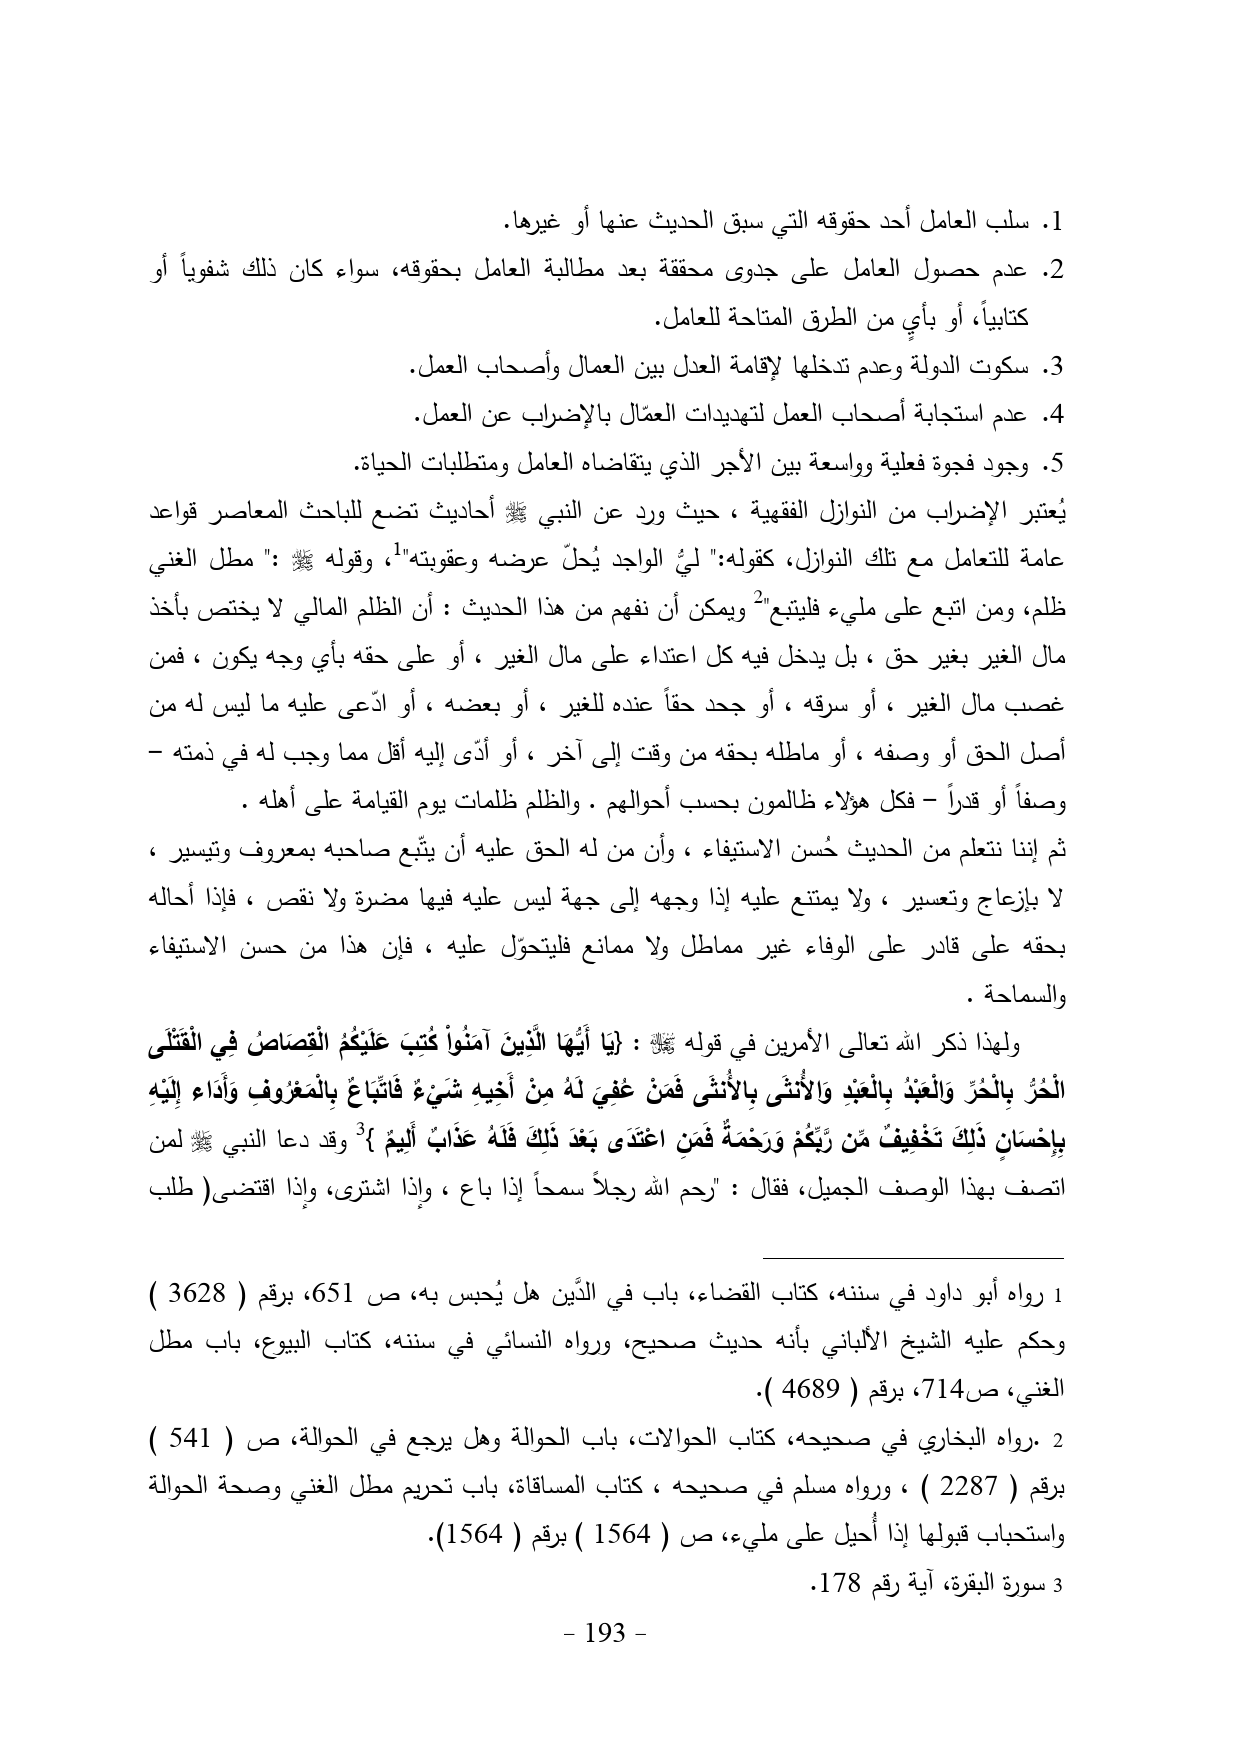 1. سلب العامل أحد حقوقه التي سبق الحديث عنها أو غيرها.
2. عدم حصول العامل على جدوى محققة بعد مطالبة العامل بحقوقه، سواء كان ذلك شفوياً أو
كتابياً، أو بأيٍ من الطرق المتاحة للعامل.
3. سكوت الدولة وعدم تدخلها لإقامة العدل بين العمال وأصحاب العمل.
4. عدم استجابة أصحاب العمل لتهديدات العمّال بالإضراب عن العمل.
5. وجود فجوة فعلية وواسعة بين الأجر الذي يتقاضاه العامل ومتطلبات الحياة.
يُعتبر الإضراب من النوازل الفقهية ، حيث ورد عن النبي ﷺ أحاديث تضع للباحث المعاصر قواعد
عامة للتعامل مع تلك النوازل، كقوله:" ليُّ الواجد يُحلّ عرضه وعقوبته"1، وقوله ﷺ :" مطل الغني
ظلم، ومن اتبع على مليء فليتبع"2 ويمكن أن نفهم من هذا الحديث : أن الظلم المالي لا يختص بأخذ
مال الغير بغير حق ، بل يدخل فيه كل اعتداء على مال الغير ، أو على حقه بأي وجه يكون ، فمن
غصب مال الغير ، أو سرقه ، أو جحد حقاً عنده للغير ، أو بعضه ، أو ادّعى عليه ما ليس له من
أصل الحق أو وصفه ، أو ماطله بحقه من وقت إلى آخر ، أو أدّى إليه أقل مما وجب له في ذمته –
وصفاً أو قدراً – فكل هؤلاء ظالمون بحسب أحوالهم . والظلم ظلمات يوم القيامة على أهله .
ثم إننا نتعلم من الحديث حُسن الاستيفاء ، وأن من له الحق عليه أن يتّبع صاحبه بمعروف وتيسير ،
لا بإزعاج وتعسير ، ولا يمتنع عليه إذا وجهه إلى جهة ليس عليه فيها مضرة ولا نقص ، فإذا أحاله
بحقه على قادر على الوفاء غير مماطل ولا ممانع فليتحوّل عليه ، فإن هذا من حسن الاستيفاء
والسماحة .
ولهذا ذكر الله تعالى الأمرين في قوله ﷻ : {يَا أَيُّهَا الَّذِينَ آمَنُواْ كُتِبَ عَلَيْكُمُ الْقِصَاصُ فِي الْقَتْلَى
الْحُرُّ بِالْحُرِّ وَالْعَبْدُ بِالْعَبْدِ وَالأُنثَى بِالأُنثَى فَمَنْ عُفِيَ لَهُ مِنْ أَخِيهِ شَيْءٌ فَاتِّبَاعٌ بِالْمَعْرُوفِ وَأَدَاء إِلَيْهِ
بِإِحْسَانٍ ذَلِكَ تَخْفِيفٌ مِّن رَّبِّكُمْ وَرَحْمَةٌ فَمَنِ اعْتَدَى بَعْدَ ذَلِكَ فَلَهُ عَذَابٌ أَلِيمٌ }3 وقد دعا النبي ﷺ لمن
اتصف بهذا الوصف الجميل، فقال : "رحم الله رجلاً سمحاً إذا باع ، وإذا اشترى، وإذا اقتضى( طلب
1 رواه أبو داود في سننه، كتاب القضاء، باب في الدَّين هل يُحبس به، ص 651، برقم ( 3628 )
وحكم عليه الشيخ الألباني بأنه حديث صحيح، ورواه النسائي في سننه، كتاب البيوع، باب مطل
الغني، ص714، برقم ( 4689 ).
2 .رواه البخاري في صحيحه، كتاب الحوالات، باب الحوالة وهل يرجع في الحوالة، ص ( 541 )
برقم ( 2287 ) ، ورواه مسلم في صحيحه ، كتاب المساقاة، باب تحريم مطل الغني وصحة الحوالة
واستحباب قبولها إذا أُحيل على مليء، ص ( 1564 ) برقم ( 1564).
3 سورة البقرة، آية رقم 178.
- 193 -